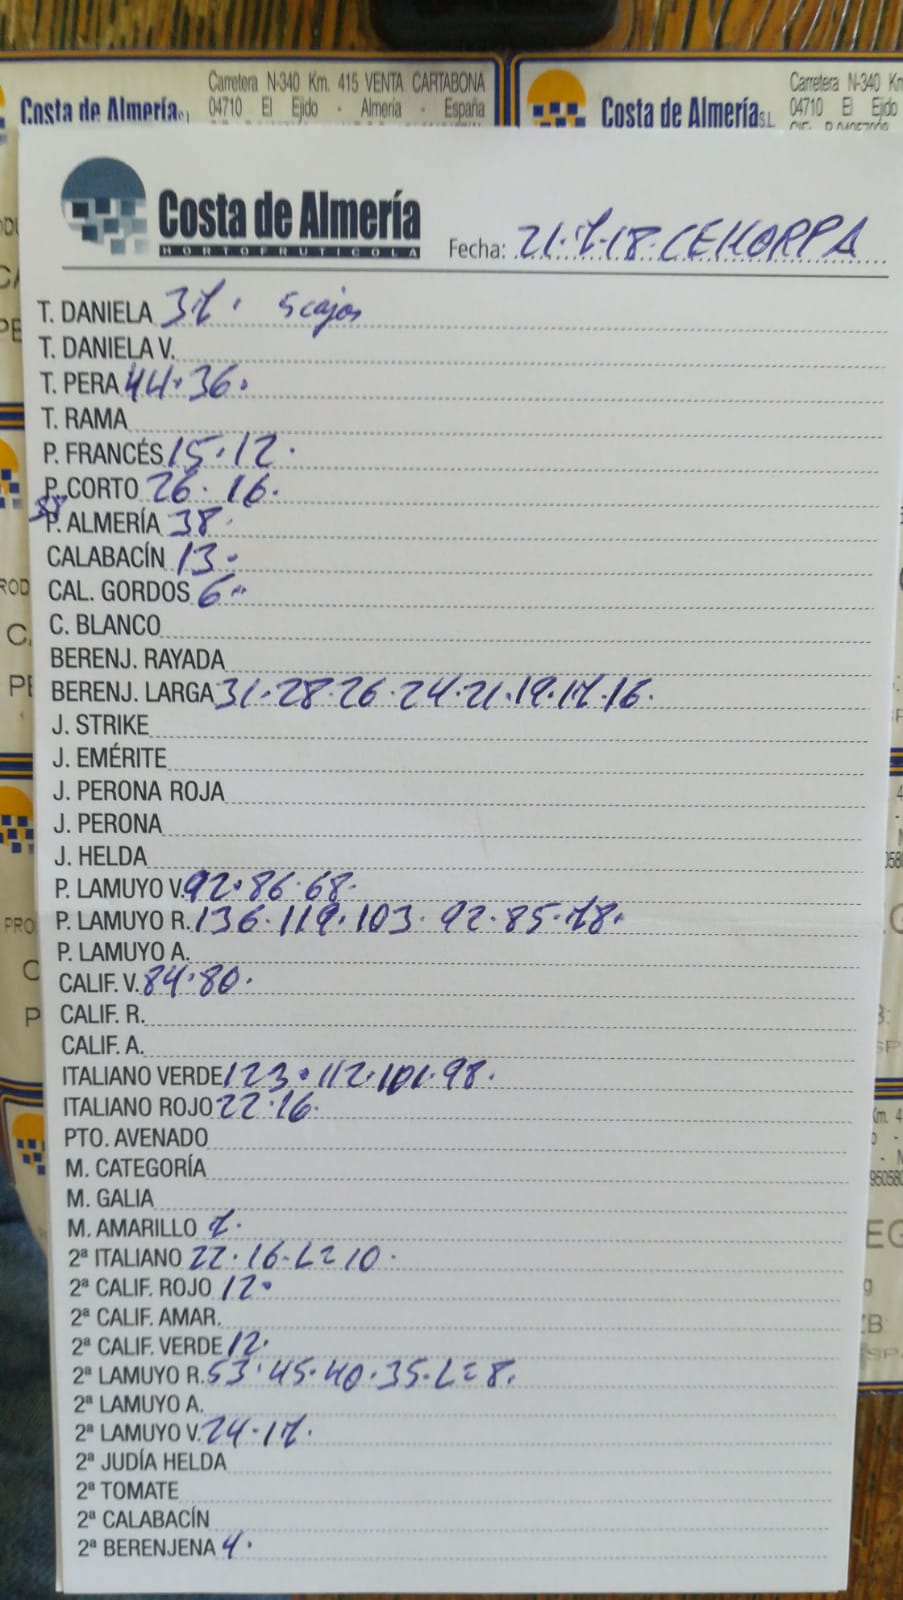 Carretera N-340 Km. 415 VENTA CARTABONA
Costa de Almería S.L. 04710 El Ejido - Almería - España
Carretera N-340 Km
Costa de Almería S.L. 04710 El Ejido
Costa de Almería
HORTOFRUTICOLA
Fecha: 21.7.18. CEHORPA
T. DANIELA 37. 5 cajas
T. DANIELA V.
T. PERA 44. 36.
T. RAMA
P. FRANCÉS 15. 12.
P. CORTO 26. 16.
38
P. ALMERÍA 38.
CALABACÍN 13.
CAL. GORDOS 6..
C. BLANCO
BERENJ. RAYADA
BERENJ. LARGA 31. 28. 26. 24. 21. 19. 17. 16.
J. STRIKE
J. EMÉRITE
J. PERONA ROJA
J. PERONA
J. HELDA
P. LAMUYO V. 92. 86. 68.
P. LAMUYO R. 136. 119. 103. 92. 85. 78.
P. LAMUYO A.
CALIF. V. 84. 80.
CALIF. R.
CALIF. A.
ITALIANO VERDE 123. 112. 101. 98.
ITALIANO ROJO 22. 16.
PTO. AVENADO
M. CATEGORÍA
M. GALIA
M. AMARILLO 7.
2ª ITALIANO 22. 16. L=10.
2ª CALIF. ROJO 12.
2ª CALIF. AMAR.
2ª CALIF. VERDE 12.
2ª LAMUYO R. 53. 45. 40. 35. L=8.
2ª LAMUYO A.
2ª LAMUYO V. 24. 17.
2ª JUDÍA HELDA
2ª TOMATE
2ª CALABACÍN
2ª BERENJENA 4.